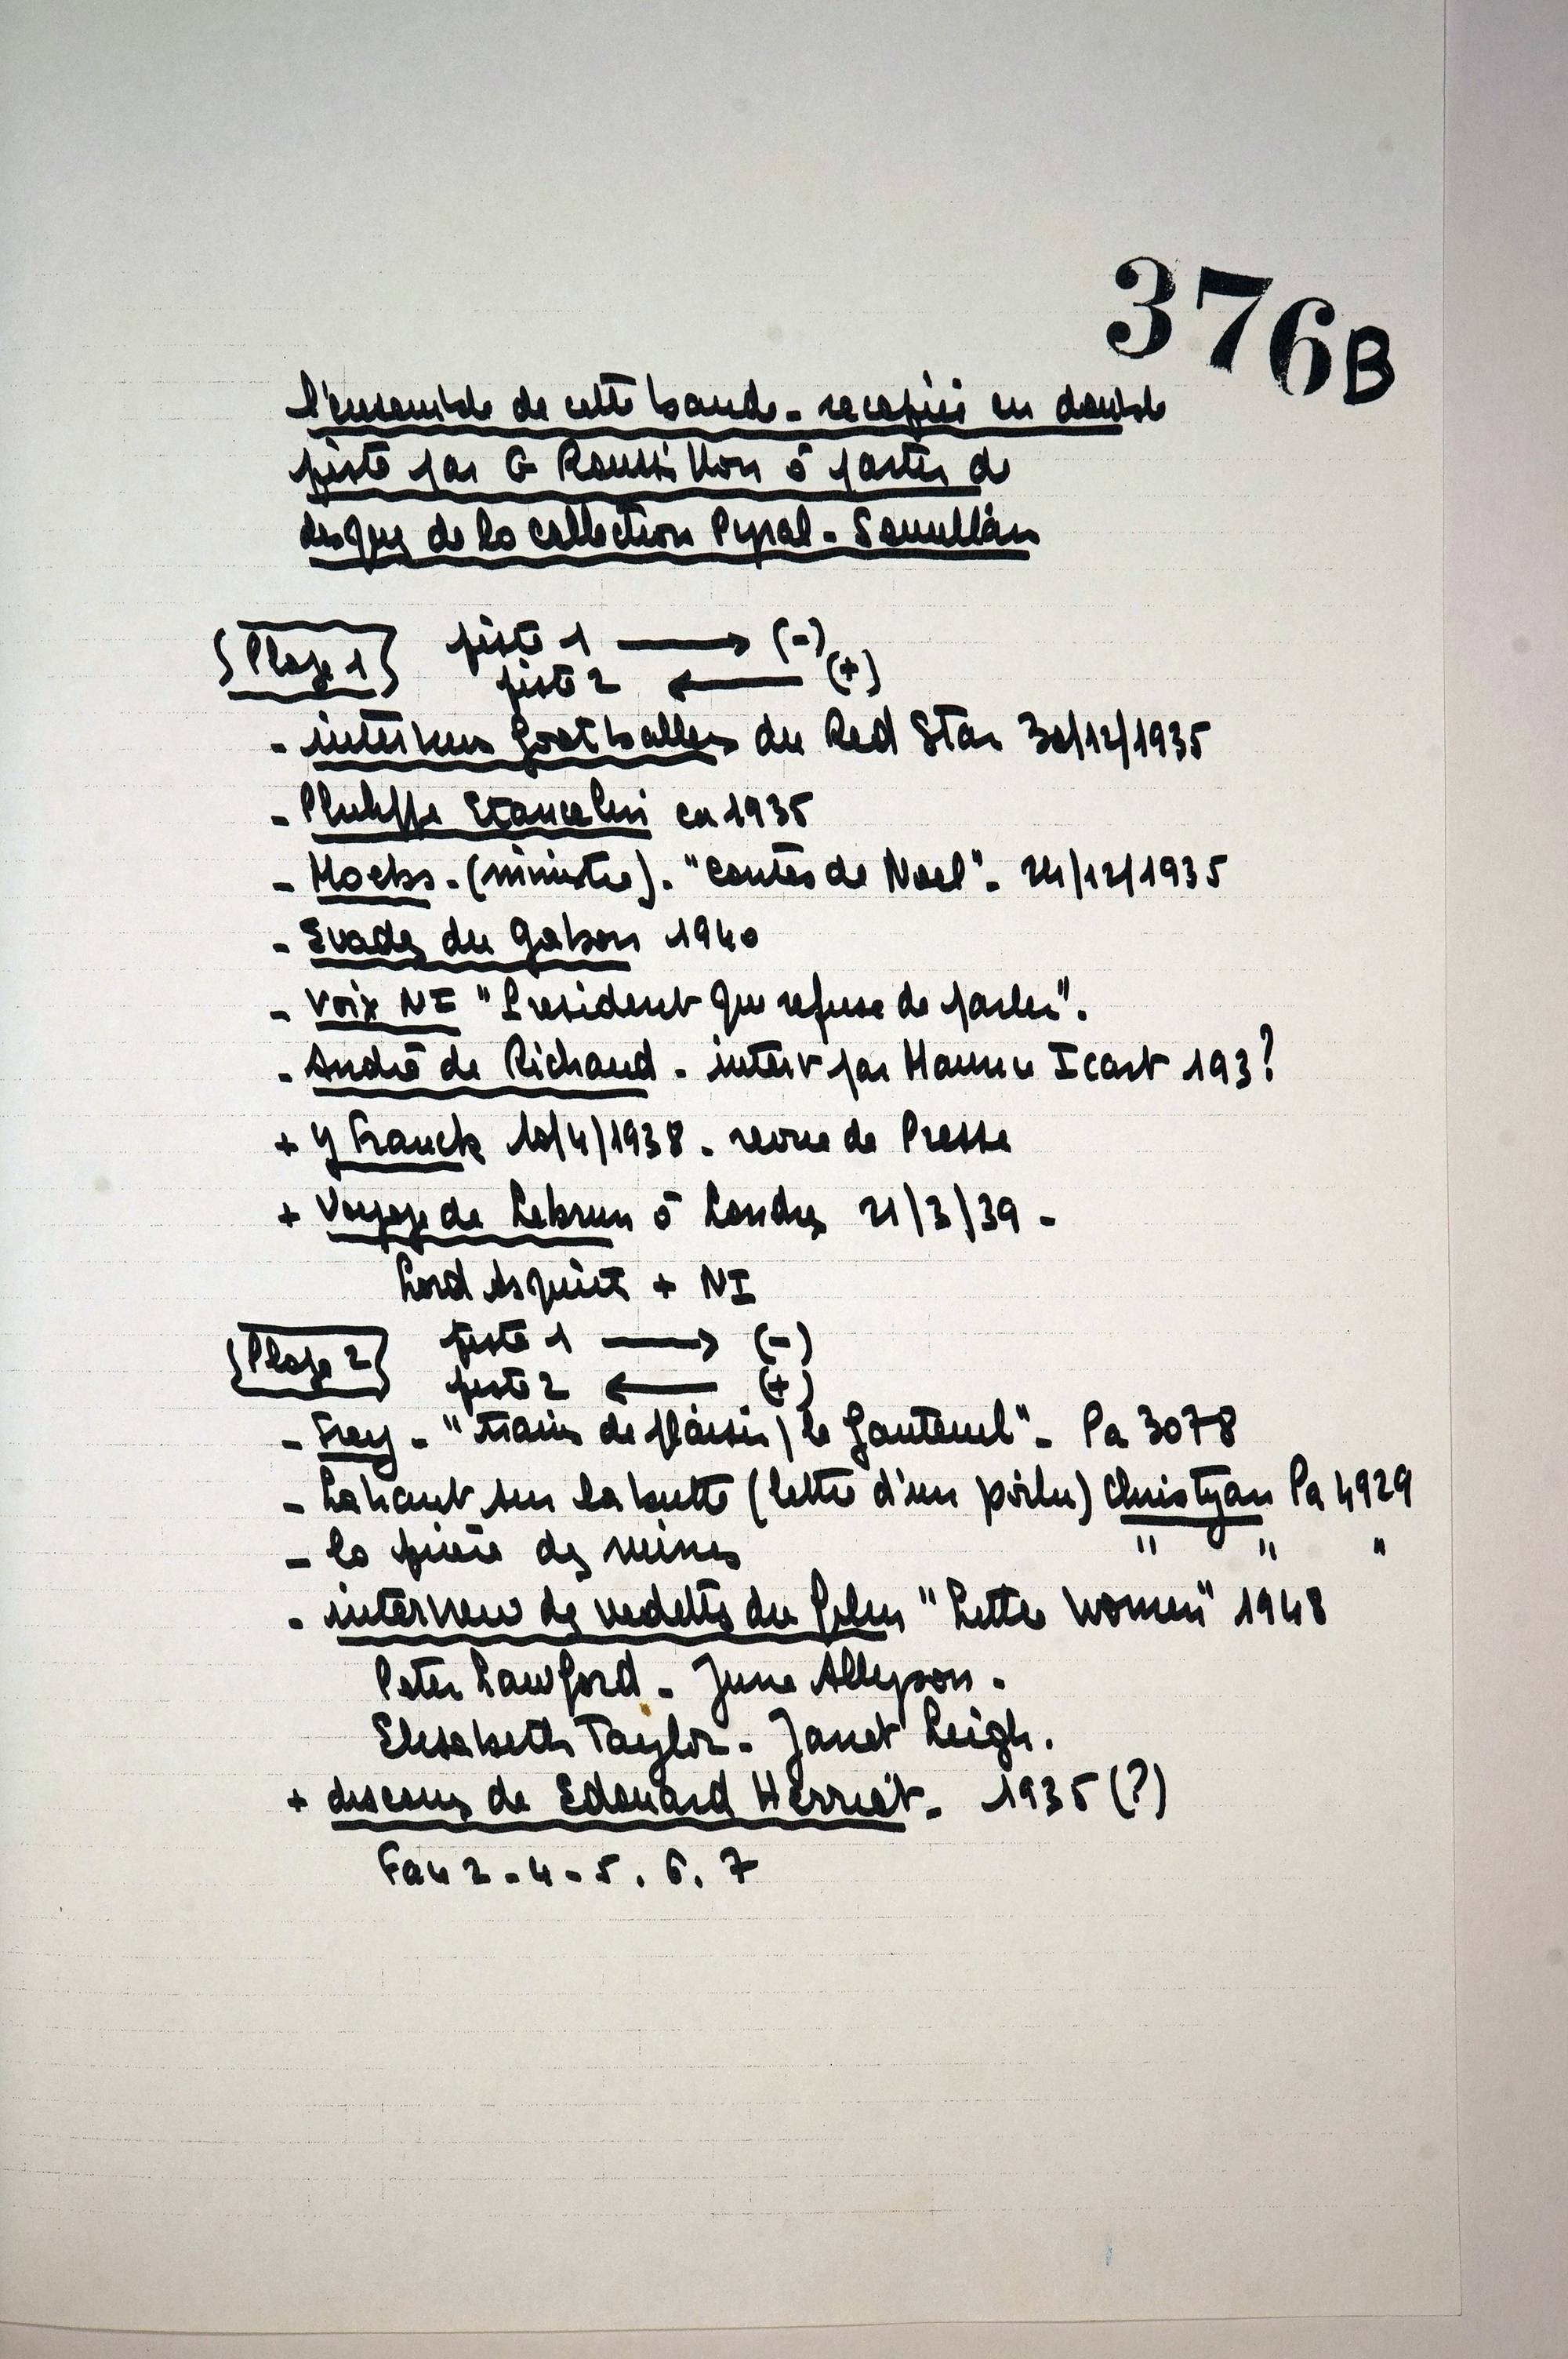 376B
l'ensemble de cette bande - recopiée en double
piste par G Roussillon à partir de
disques de la collection Pyral - Semullin
Plage 1 piste 1 → (-)
piste 2 ← (+)
- interview footballers du Red Star 30/12/1935
- Philippe Etancelin en 1935
- (ministre). "contes de Noel". 24/12/1935
- Evades du Gabon 1940
- Voix NI "President qui refuse de parler".
- André de Richaud - interv par Maurice Icart 193?
+ Y Franck 10/4/1938 - revue de Presse
+ Voyage de Lebrun à Londres 21/3/39 -
Lord Asquiet + NI
Plage 2 piste 1 → (-)
piste 2 ← (+)
- Frey - "trains de plaisir / le fauteuil" - Pa 3078
- La haut sur la butte (lettre d'un poilu) Christyan Pa 4929
- la prière des ruines " " "
- interview des vedettes du film "Little Women" 1948
Peter Lawford - June Allyson -
Elisabeth Taylor - Janet Leigh.
+ discours de Edouard Herriot - 1935 (?)
Fac 2 - 4 - 5 . 6 . 7